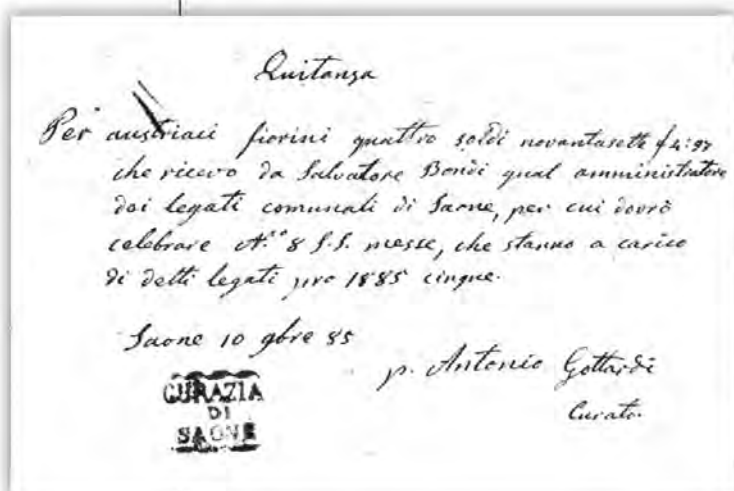 Quitanza
Per austriaci fiorini quattro soldi novantasette f 4:97
che ricevo da Salvatore Bondi qual amministratore
dei legati comunali di Saone, per cui dovrò
celebrare N.º 8 S.S. messe, che stanno a carico
di detti legati pro 1885 cinque.
Saone 10 9bre 85
p. Antonio Gottardi
Curato.
CURAZIA
DI
SAONE